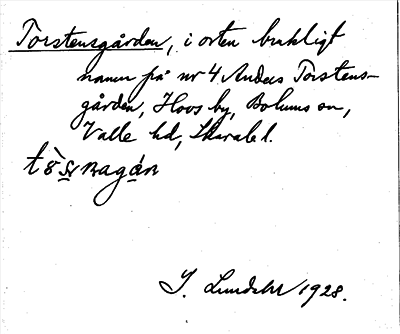 Torstensgården, i orten brukligt
namn på nr 4 Anders Torstens-
gården, Hovs by, Bolums sn,
Valle hd, Skarab. l.
I. Lundahl 1928.